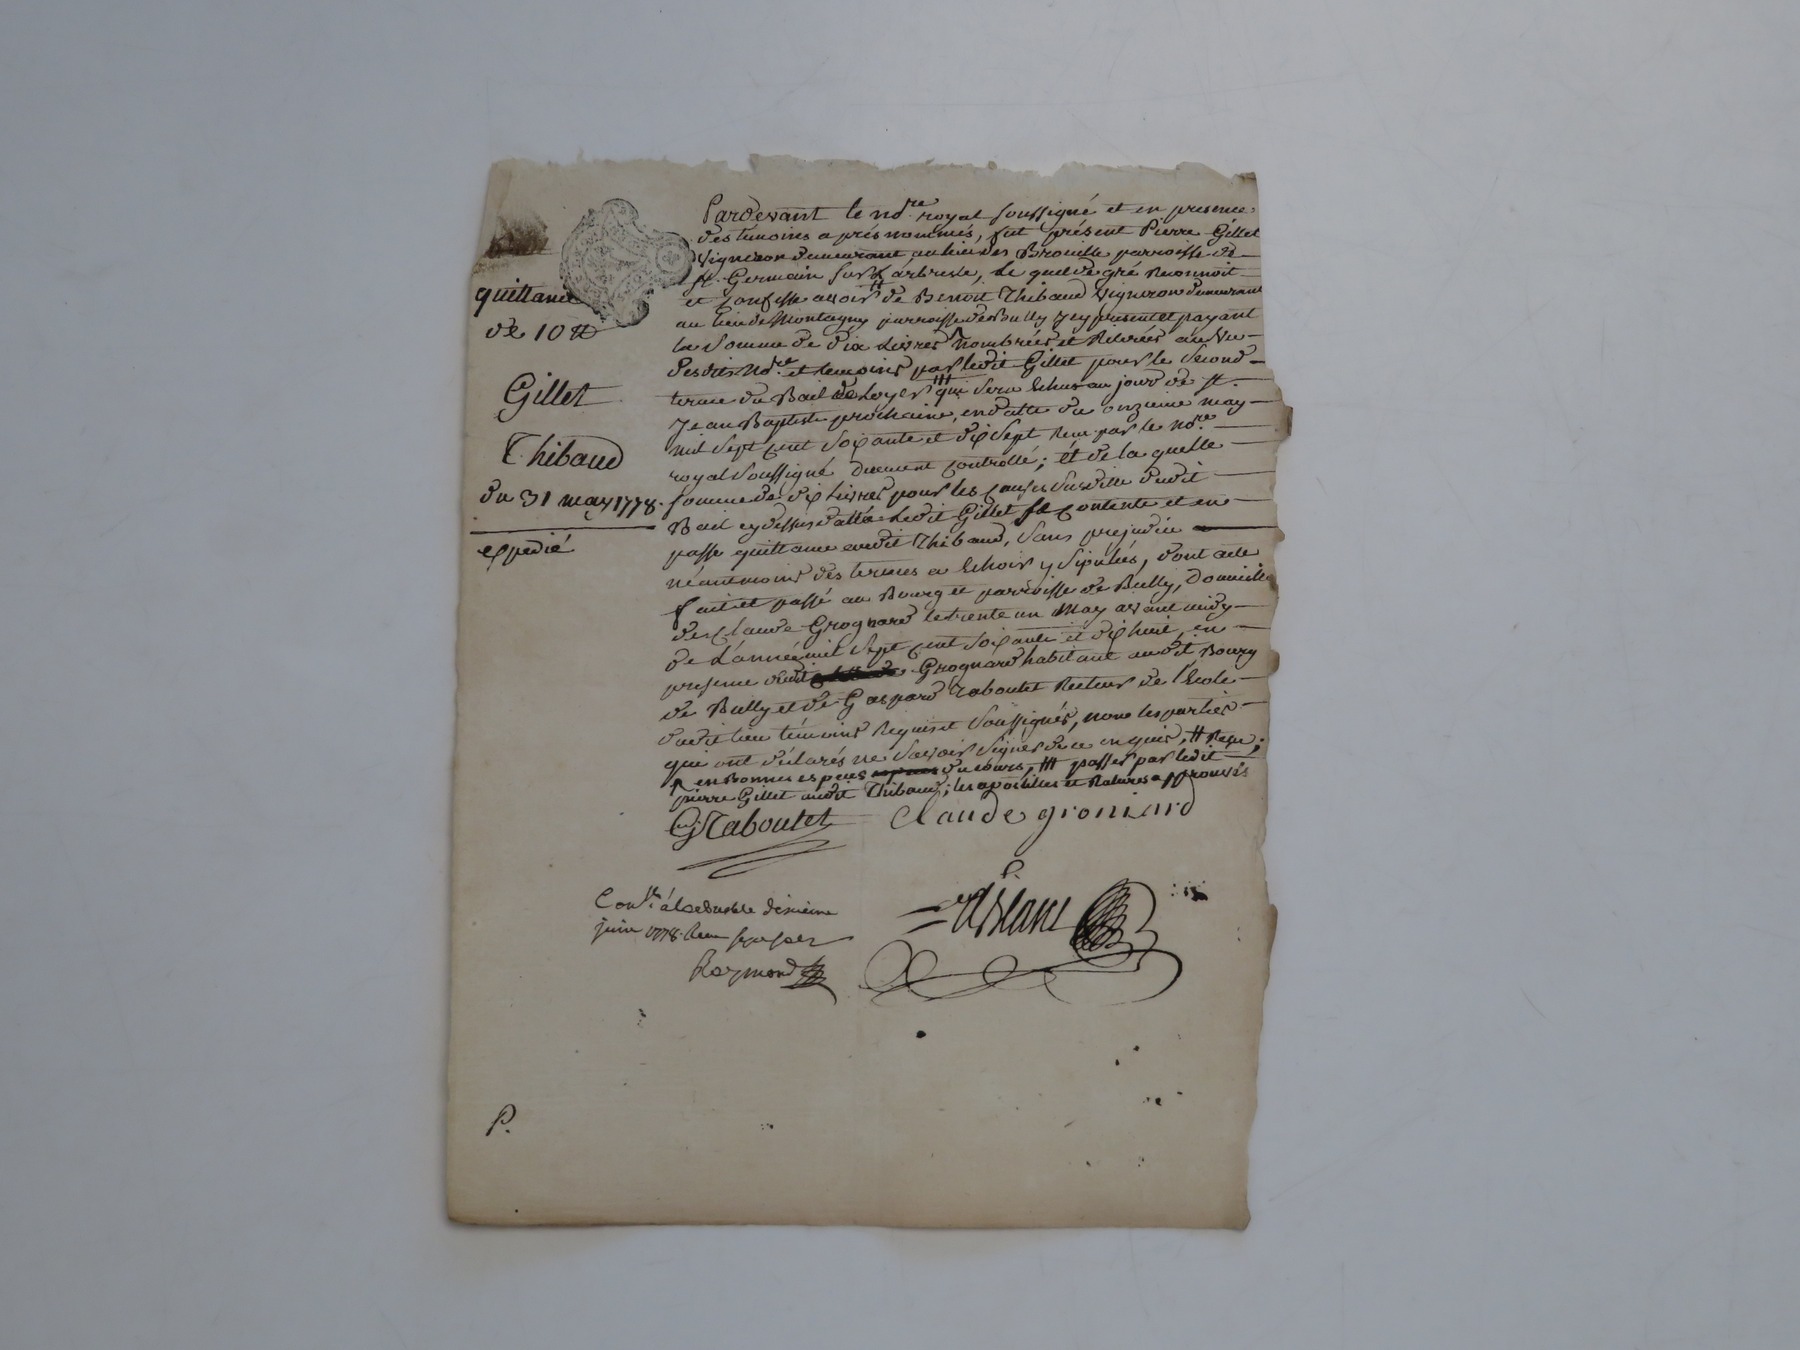 quittance
de 10 ₶
Gillet
Thibaud
du 31 may 1778.
expedié
Pardevant le no.re royal soussigné et en presence
des témoins après nommés, fut présent Pierre Gillet
vigneron demeurant au lieu des Brouille parroisse de
st. Germain sur l'arbresle, lequel de gré reconnoit
et confesse avoir # de Benoit Thibaud vigneron demeurant
au lieu de Montagny parroisse de Bully icy present et payant
la somme de dix Livres nombrées et retirées au vu
desdits no.re et temoins par ledit Gillet pour le second
terme du Bail de Loyer ### qui sera Echus au jour de st.
Jean Baptiste prochaine, en datte du onzieme may
mil sept cent soixante et dix sept reçu par le no.re
royal soussigné duement controllé; et de la quelle
somme de dix Livres pour les causes susdite dudit
Bail cy dessus datté Ledit Gillet se contente et en
passe quittance audit Thibaud, sans prejudice
néantmoins des termes a Echoir y stipulés, dont acte
fait et passé au Bourg et parroisse de Bully, domicille
de Claude Grognard le trente un May avant midy
de L'année mil sept cent soixante et dix huit, en
presence dudit Grognard habitant audit Bourg
de Bully et de Gaspard Taboutet Recteur de l'Ecole
dudit lieu témoins requis et soussignés, nons les parties
qui ont déclarés ne sçavoir signer de ce enquis, # Reçu;
en Bonnes especes du cours, ### passer par ledit
pierre Gillet audit Thibaud; les apostilles et Ratures approuvés
G Taboutet Claude groniard
Con.lé à Larbresle dixieme
juin 1778. Reçu
Raymond
P.